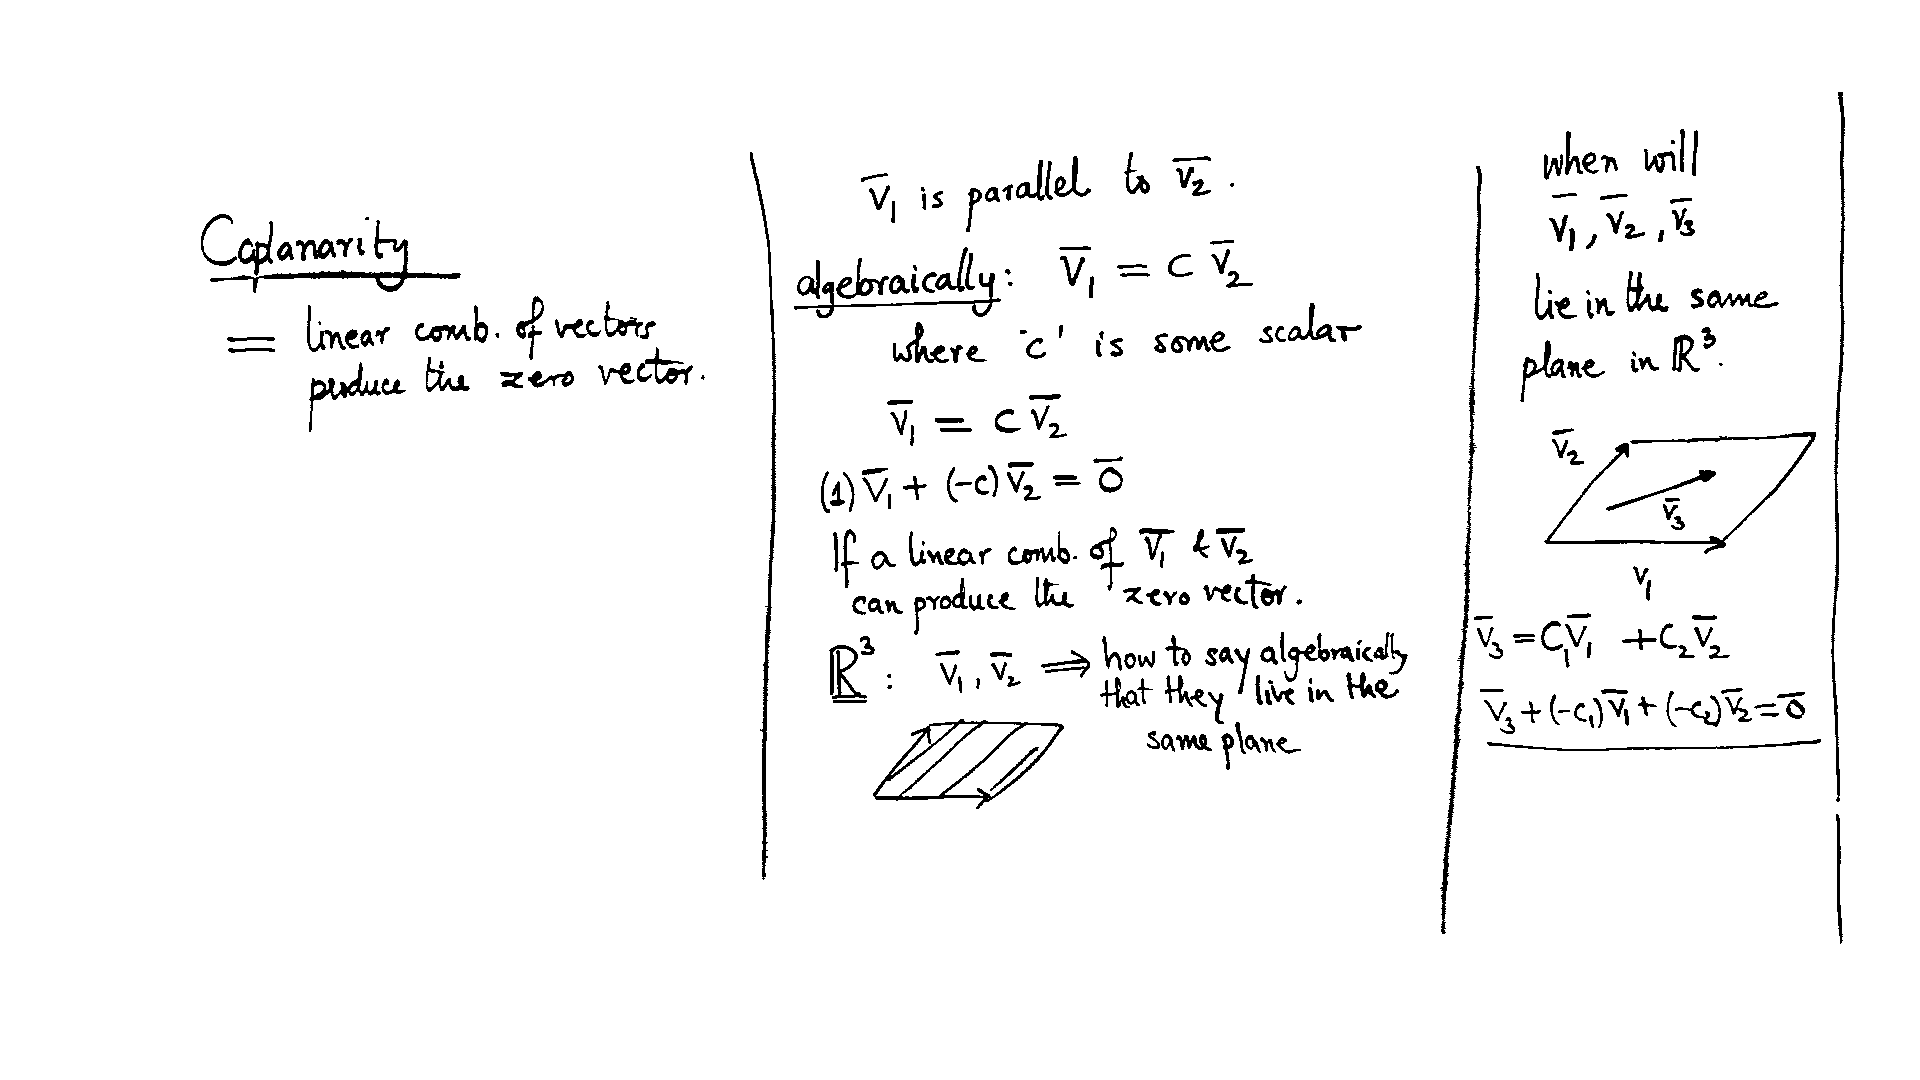 Coplanarity
= linear comb. of vectors
produce the zero vector.
V̅₁ is parallel to V̅₂.
algebraically: V̅₁ = C V̅₂
where 'c' is some scalar
V̅₁ = C V̅₂
(1) V̅₁ + (-c) V̅₂ = 0̅
If a linear comb. of V̅₁ & V̅₂
can produce the zero vector.
ℝ³: V̅₁, V̅₂ ⇒ how to say algebraically
that they live in the
same plane
when will
V̅₁, V̅₂, V̅₃
lie in the same
plane in ℝ³.
V̅₂
V̅₃
V₁
V̅₃ = C₁V̅₁ + C₂V̅₂
V̅₃ + (-c₁)V̅₁ + (-c₂)V̅₂ = 0̅